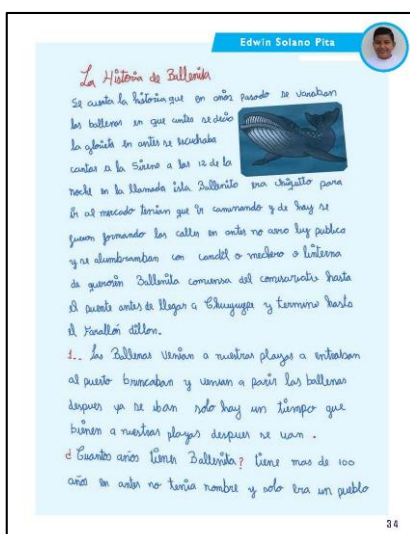 Edwin Solano Pita
La Historia de Ballenita
Se cuenta la historia que en años pasado se varaban
las ballenas en que antes se decia
la glorieta en antes se escuchaba
cantar a la Sirena a las 12 de la
noche en la llamada isla Ballenita era chiquito para
ir al mercado tenian que ir caminando y de hay se
fueron formando las calles en antes no avia luz publica
y se alumbramban con candil o mechero o linterna
de querosin Ballenita comiensa del comisariato hasta
el puente antes de llegar a Chuyuype y termina hasta
el Farallón dillon.
1.. las Ballenas venian a nuestras playas a entraban
al puerto brincaban y venian a parir las ballenas
despues ya se iban solo hay un tiempo que
bienen a nuestras playas despues se van .
¿Cuantos años tienes Ballenita? tiene mas de 100
años en antes no tenia nombre y solo era un pueblo
34